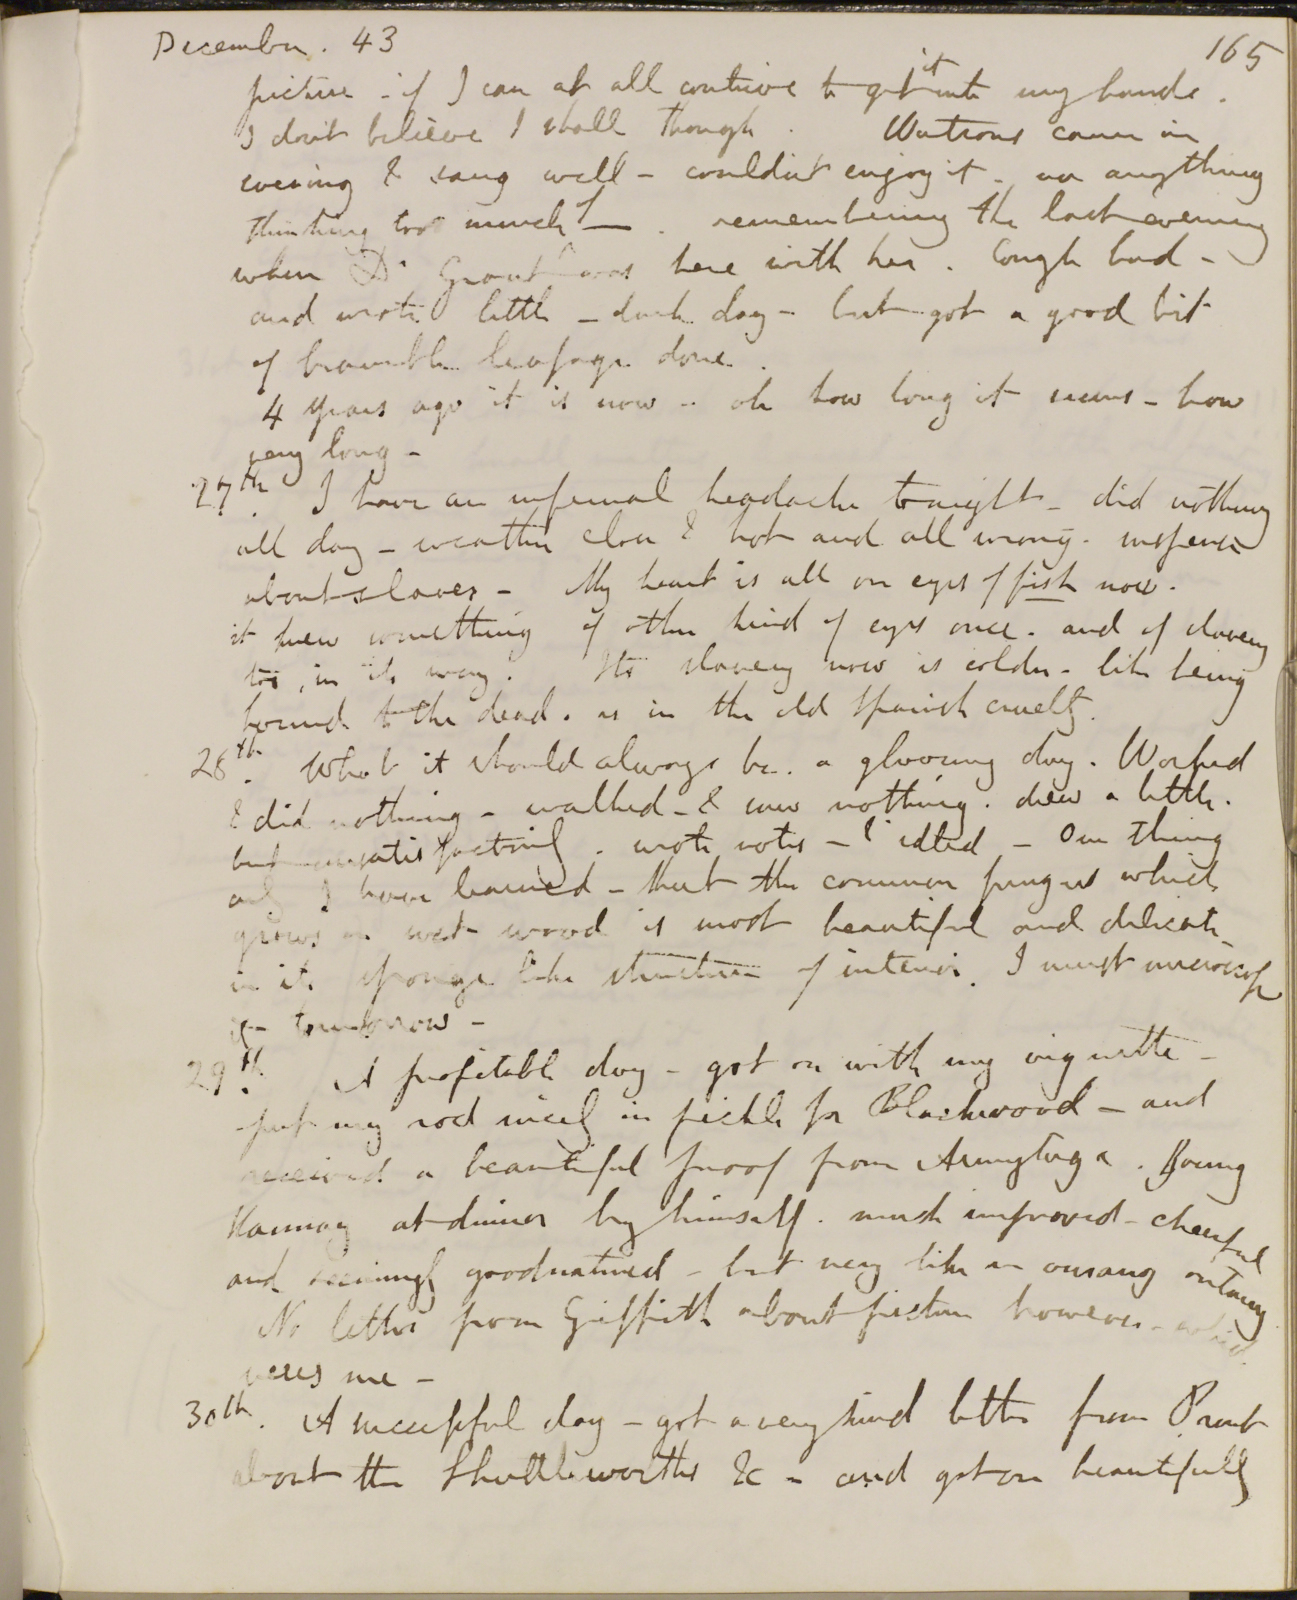 December. 43
165
picture - if I can at all contrive to get it into my hands.
I don't believe I shall though. Watsons came in
evening & sang well - couldn't enjoy it - nor anything
thinking too much of —. remembering the last evening
when Dr Grant was here with her. Cough bad -
and wrote little - dark day - but got a good bit
of bramble leafage done.
4 years ago it is now - oh how long it seems - how
very long -
27th. I have an infernal headache tonight - did nothing
all day - weather close & hot and all wrong. suspense
about slaver - My heart is all on eyes of fish now.
it knew something of other kind of eyes once. and of slavery
too, in its way. Its slavery now is colder - like being
bound to the dead. as in the old Spanish cruelty.
28th. What it should always be. a gloomy day. Worked
& did nothing - walked - & saw nothing. drew a little.
but unsatisfactorily. wrote notes - & idled - One thing
only I have learned - that the common fungus which
grows on wet wood is most beautiful and delicate
in its sponge like structure of interior. I must microscope
it tomorrow -
29th. A profitable day - got on with my vignette -
put my rod nicely in pickle for Blackwood - and
received a beautiful proof from Armytage. Young
Hannay at dinner by himself. much improved - cheerful
and seemingly goodnatured - but very like an ourang outang
No letter from Griffith about picture however - which
vexes me -
30th. A successful day - got a very kind letter from Prout
about the Shuttleworths &c - and got on beautifully